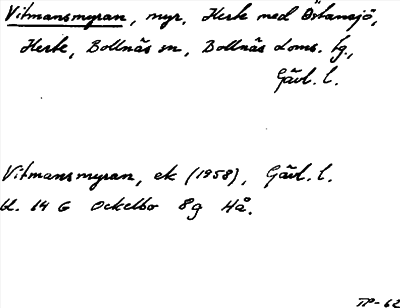 Vitmansmyran, myr, Herte med Östansjö,
Herte, Bollnäs sn, Bollnäs doms. fg.,
Gävl. l.
Vitmansmyran, ek (1958), Gävl. l.
bl. 14 G Ockelbo 8g Hå.
TP-62